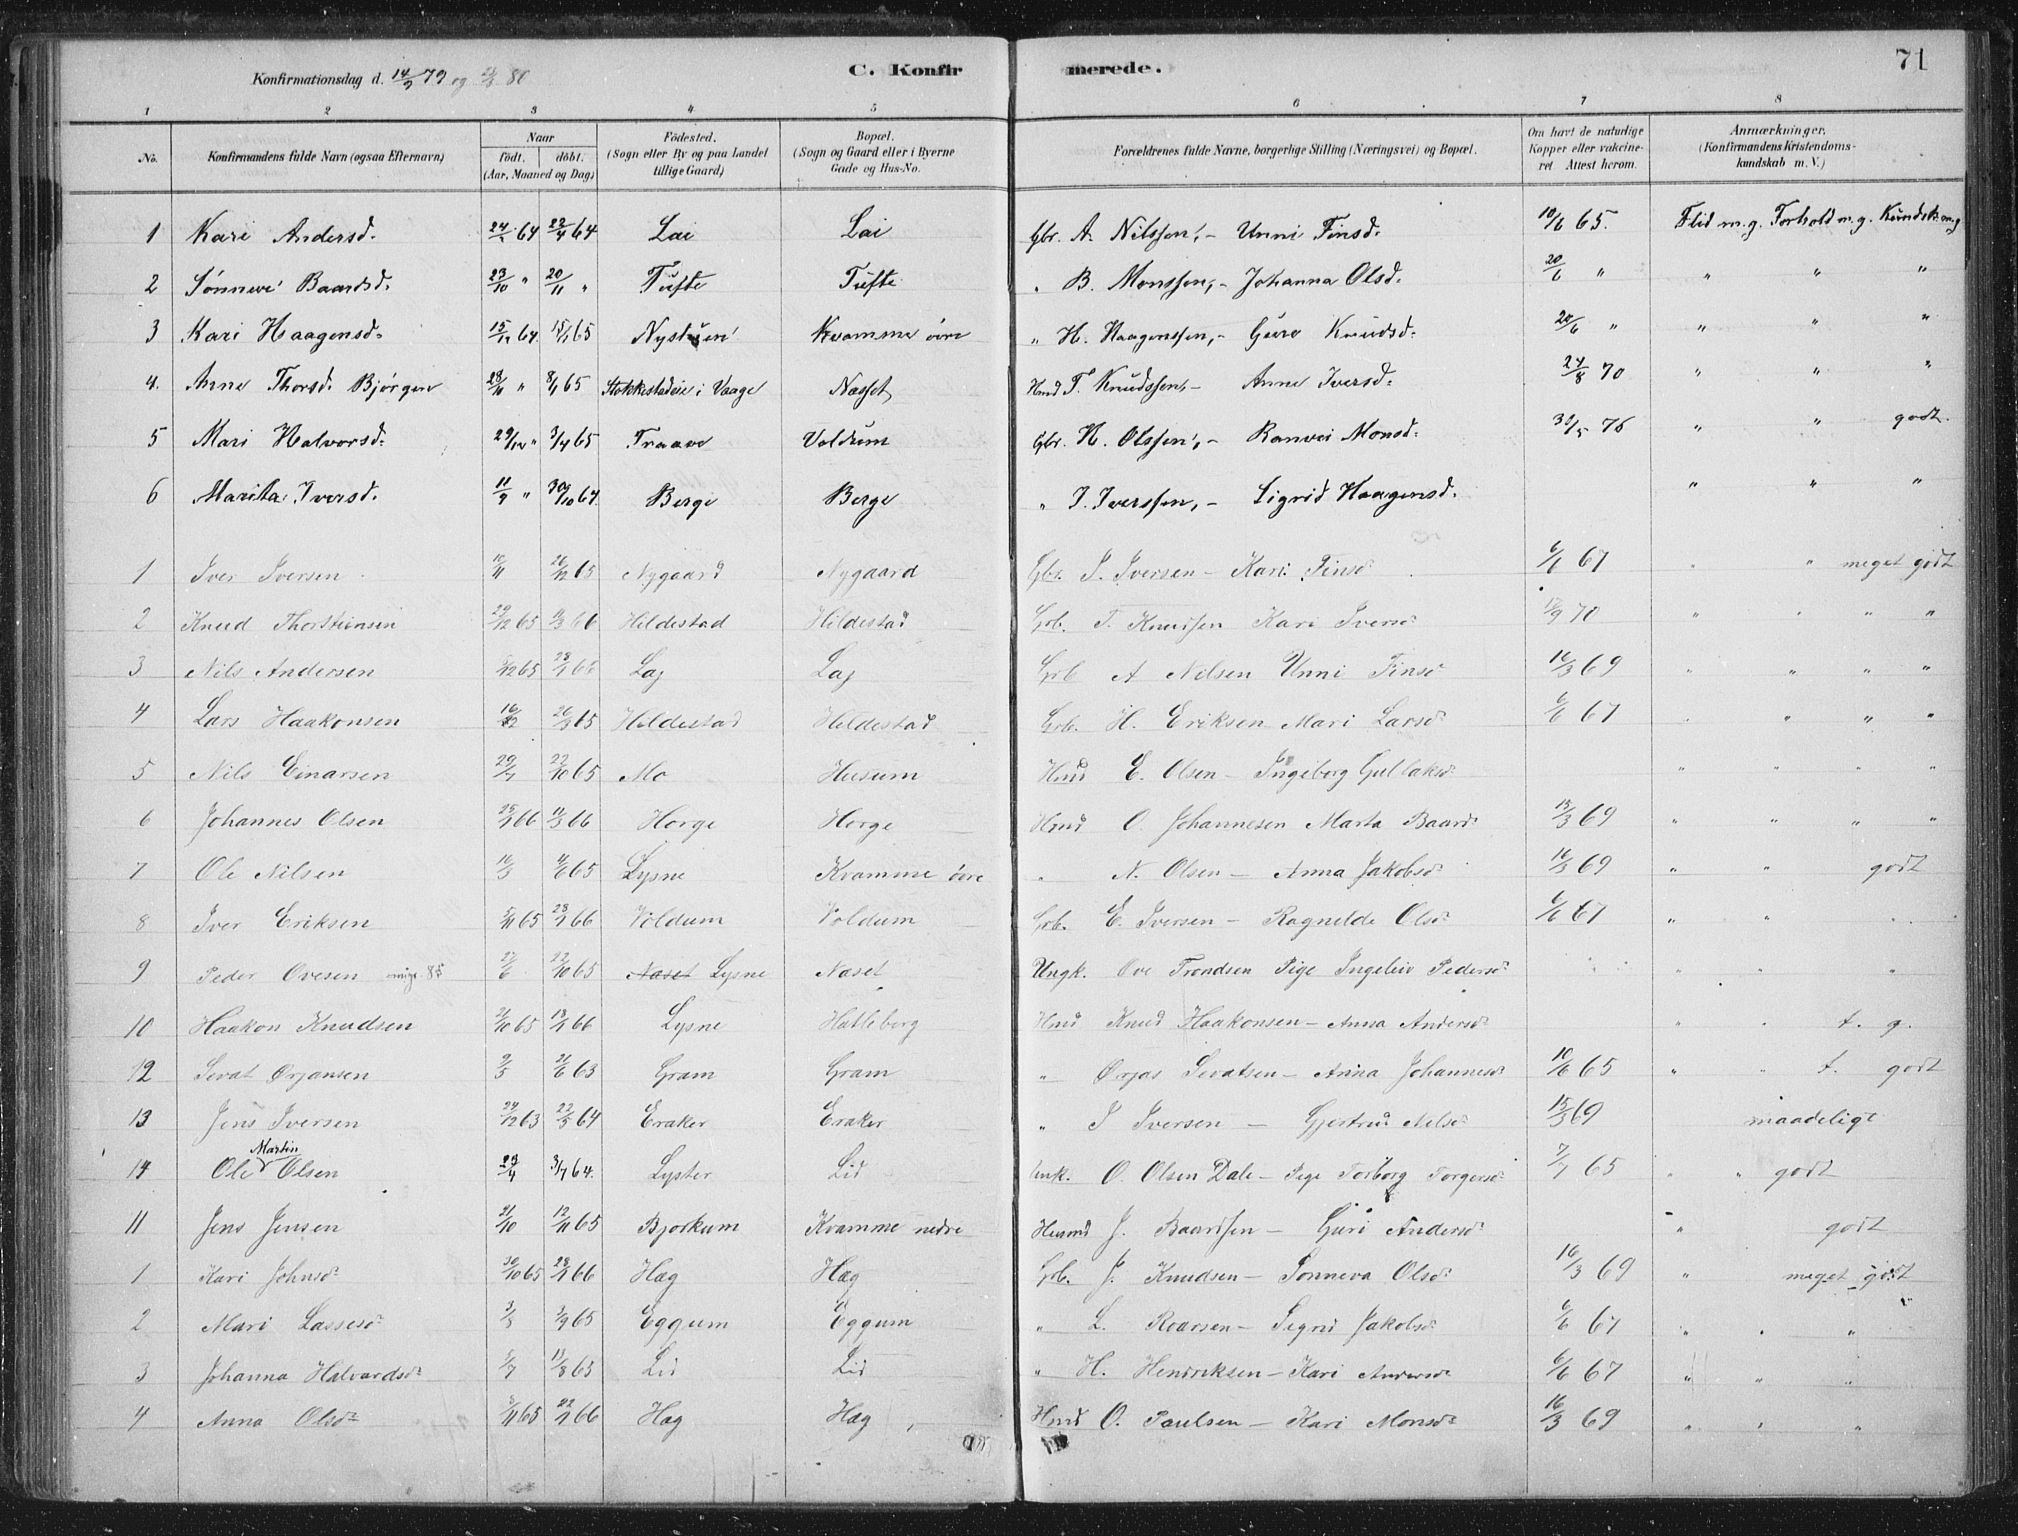 Konfirmationsdag d. 14/9 79 og 80
C. Konfirmerede.
71
1 2 3 4 5 6 7 8
No. Konfirmandens fulde Navn (ogsaa Efternavn) Naar født. døbt. (Aar, Maaned og Dag) Fødested. (Sogn eller By og paa Landet tillige Gaard) Bopæl. (Sogn og Gaard eller i Byerne Gade og Hus-No. Forældrenes fulde Navne, borgerlige Stilling (Næringsvei) og Bopæl. Om havt de naturlige Kopper eller vakcineret Attest herom. Anmærkninger. (Konfirmandens Kristendomskundskab m. V.)
1 Kari Andersd. 64 22/4 64 Lai Lai Gbr. A. Nilssen, - Unni Finsd. 10/6 65. Flid m.g. Forhold m.g. Kundsk. m.g
2 Sønnevi Baardsd. 23/10 " 20/11 " Tufte Tufte " B. Monssen, - Johanna Olsd. 20/6 " " " "
3 Kari Haagensd. 15/12 64. 15/1 65 Nystuen Kvamme øvre " H. Haagenssen, - Guro Knudsd. 20/6 " " " "
4. Anne Thorsd. Bjørgen 28/11 " 8/1 65 Stokkestadeie i Vaage Næsset Hmd T. Knudssen, - Anne Iversd. 24/8 70 " " "
5 Mari Halvorsd. 29/12 " 3/4 65 Traave Voldum Gbr. H. Olssen, - Ranvei Monsd. 30/5 76 " " godt.
6 Marita Iversd. 11/9 " 30/10 64. Berge Berge " I. Iverssen, - Sigrid Haagensd. " " "
1 Iver Iversen 10/11 26/12 65 Nygaard Nygaard Gbr. I. Iversen - Kari Finsd 6/1 67 " " meget godt
2 Knud Thorstiensen 29/12 65 11/3 66 Hildestad Hildestad Grb. T. Knudsen Kari Iversd 12/9 70 " " " "
3 Nils Andersen /12 65 28/1 66 Laj Laj Grb A Nilsen Unni Finsd 16/3 69 " " " "
4 Lars Haakonsen 16/2 26/3 65 Hildestad Hildestad Grb. H. Eriksen Mari Larsd 6/6 67 " " " "
5 Nils Einarsen 29/7 22/10 65 Mo Husum Hmd E. Olsen - Ingeborg Gullaksd " " " "
6 Johannes Olsen 25/1 66 11/3 66 Horge Horge Hmd O. Johannesen Marta Baard 13/3 69 " " " "
7 Ole Nilsen 16/3 4/6 65 Lysne Kvamme øvre " N. Olsen - Anna Jakobsd 16/3 69 " " godt
8 Iver Eriksen 5/11 65 28/1 66 Voldum Voldum Grb. E. Iversen - Ragnilde Olsd 6/6 67 " "
9 Peder Ovesen 85 27/6 22/10 65 Naset Lysne Naset Ungk. Ove Trondsen Pige Ingeleiv Pedersd " " "
10 Haakon Knudsen 21/10 65 13/1 66 Lysne Hatleberg Hmd Knud Haakonsen - Anna Andersd " " t. g.
12 Sevat Ørjansen 9/5 21/6 63 Gram Gram " Ørjas Sevatsen - Anna Johannesd 10/6 65 " " t. godt
13 Jens Iversen 24/12 63 22/5 64 Eraker Eraker " I Iversen - Gjertrud Nilsd 15/3 69 maadeligt
14 Ole Martin Olsen 29/4 3/7 64. Lyster Lid Unk. O. Olsen Dale - Pige Torborg Torgersd 7/7 65 " " godt
11 Jens Jensen 21/10 12/11 65 Bjorkum Kvamme nedre Husmd J. Baardsen - Guri Andersd " godt
1 Kari Johnsd 30/10 65 28/1 66 Hæg Hæg Grb. J. Knudsen - Sonneva Olsd 16/3 69 " meget godt
2 Mari Lassesd 3/3 3/9 65 Eggum Eggum " L. Roarsen - Sigrid Jakobsd 6/6 67 " " "
3 Johanna Halvardsd 5/7 13/8 65 Lid Lid " H. Henriksen - Kari Andersd 6/6 67 " " "
4 Anna Olsd 5/11 65 22/1 66 Hæg Hæg Hmd O. Paulsen - Kari Monsd 16/3 69 " " "